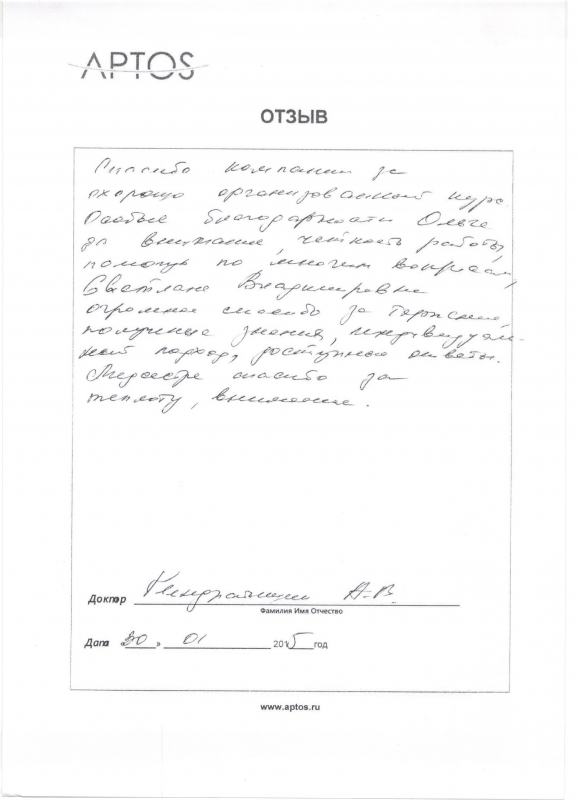 APTOS
ОТЗЫВ
Спасибо компании за
хорошо организованный курс.
Особые благодарности Ольге
за внимание, четкость работы,
помощь по многим вопросам,
Светлане Владимировне
огромное спасибо за терпение,
полученные знания, индивидуаль-
ный подход, доступные ответы.
Медсестре спасибо за
теплоту, внимание.
Доктор А.В.
Фамилия Имя Отчество
Дата «30» 01 2015 год
www.aptos.ru